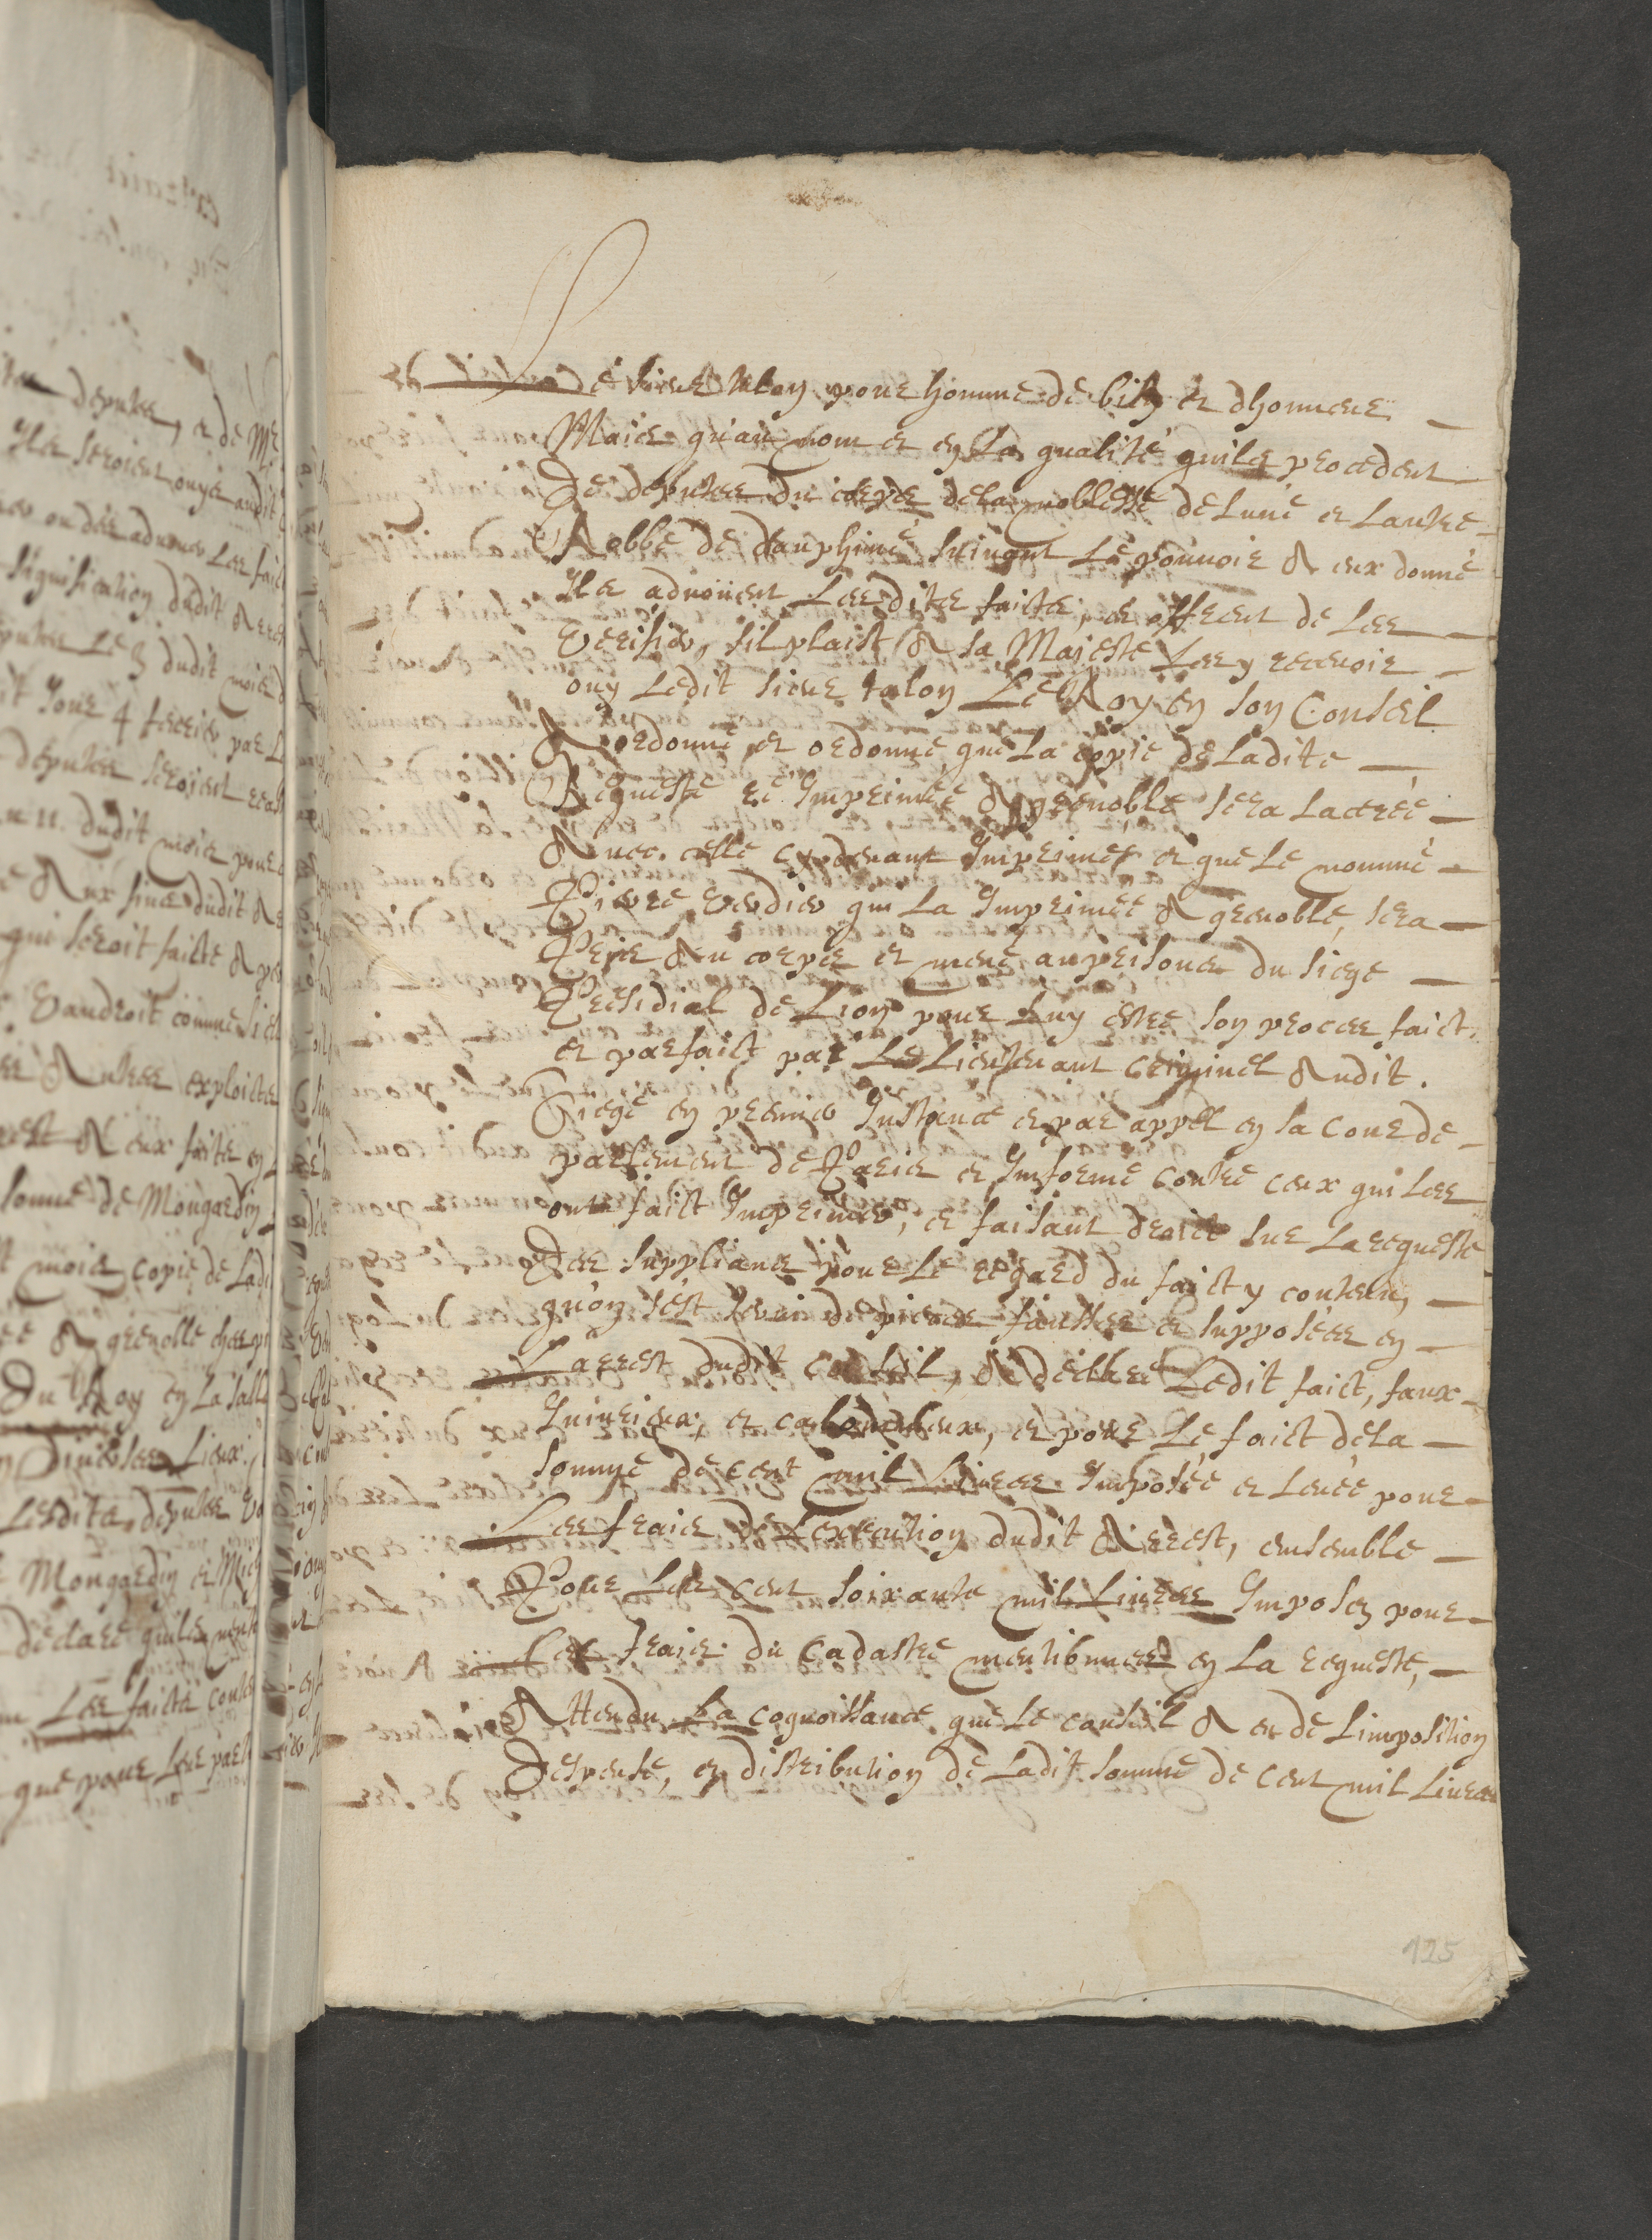 Le sieur talon pour homme de bien et dhonneur
Mais qu'au nom et en La qualité quils procedent
De deputes du corps de la noblesse de Lune et Lautre
Robbe de dauphiné suivant Le pouvoir A eux donné
Ils advoüent Lesdits faicts, et offrent de Les
Verifier, sil plaist A sa Majesté Les y recevoir
ouy Ledit sieur talon Le Roy en son Conseil
A ordonné et ordonne que La copie de Ladite
Requeste re Imprimée A grenoble sera Lacerée
Avec celle cydevant Imprimée et que Le nommé
Pierre Verdier qui La Imprimée A grenoble, sera
Pris Au corps et mené au prisons du siege
Presidial de Lion pour Luy estre son proces faict
et parfaict par Le Lieutenant criminel Audit
Siege en premier Instance et par appel en sa cour de
parlement de Paris et Informé contre ceux qui Les
ont faict Imprimer, et faisant droict sur La requeste
Des suppliants pour Le regard du faict y contenu,
qu'on sest servi de pieces fausses et supposées en
Larrest dudit conseil, A declaré Ledit faict, faux
Iniurieux et calomnieux, et pour Le faict de La
somme de cent mil Livres Imposée et Levée pour
Les frais de Lexecution dudit Arrest, ensemble
Pour Les cent soixante mil Livres Imposez pour
Les frais du Cadastre mentionnees en La requeste,
Attendu La cognoissance que Le conseil A eu de Limposition
Despense, et distribution de Ladit somme de cent mil Livres
125